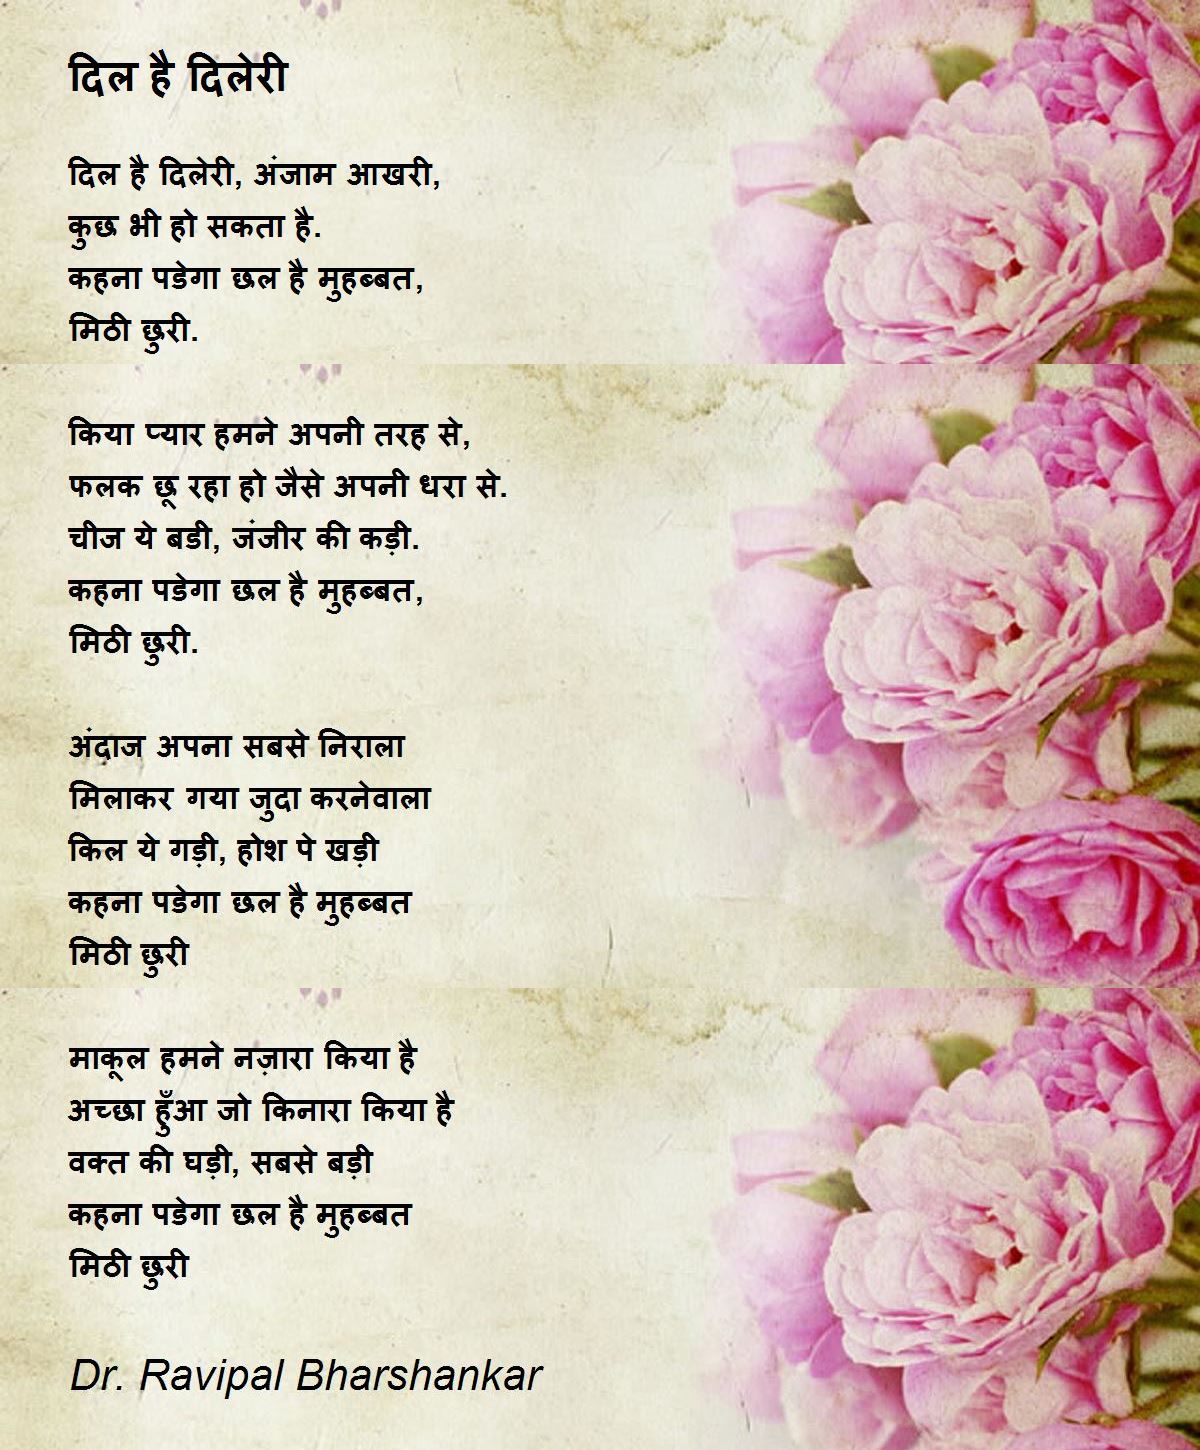 दिल है दिलेरी
दिल है दिलेरी, अंजाम आखरी,
कुछ भी हो सकता है.
कहना पडेगा छल है मुहब्बत,
मिठी छुरी.
किया प्यार हमने अपनी तरह से,
फलक छू रहा हो जैसे अपनी धरा से.
चीज ये बडी, जंजीर की कड़ी.
कहना पडेगा छल है मुहब्बत,
मिठी छुरी.
अंदाज अपना सबसे निराला
मिलाकर गया जुदा करनेवाला
किल ये गड़ी, होश पे खड़ी
कहना पडेगा छल है मुहब्बत
मिठी छुरी
माकूल हमने नज़ारा किया है
अच्छा हुँआ जो किनारा किया है
वक्त की घड़ी, सबसे बड़ी
कहना पडेगा छल है मुहब्बत
मिठी छुरी
Dr. Ravipal Bharshankar